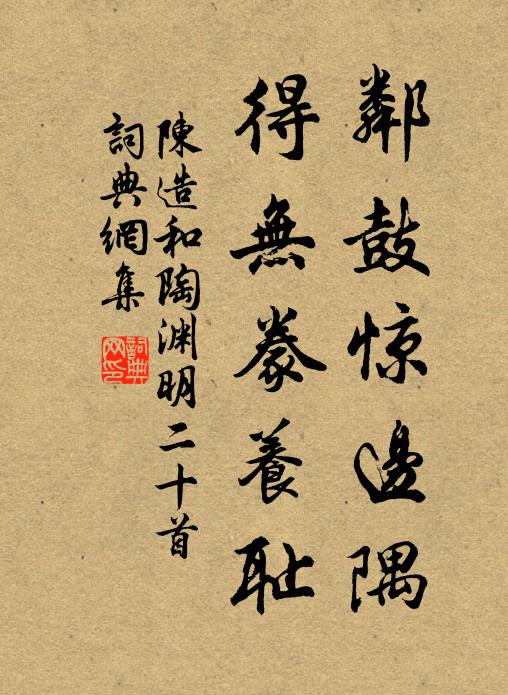 鄰鼓惊邊隅
得無豢養耻
陳造和陶淵明二十首
詞典網集
詞典网印